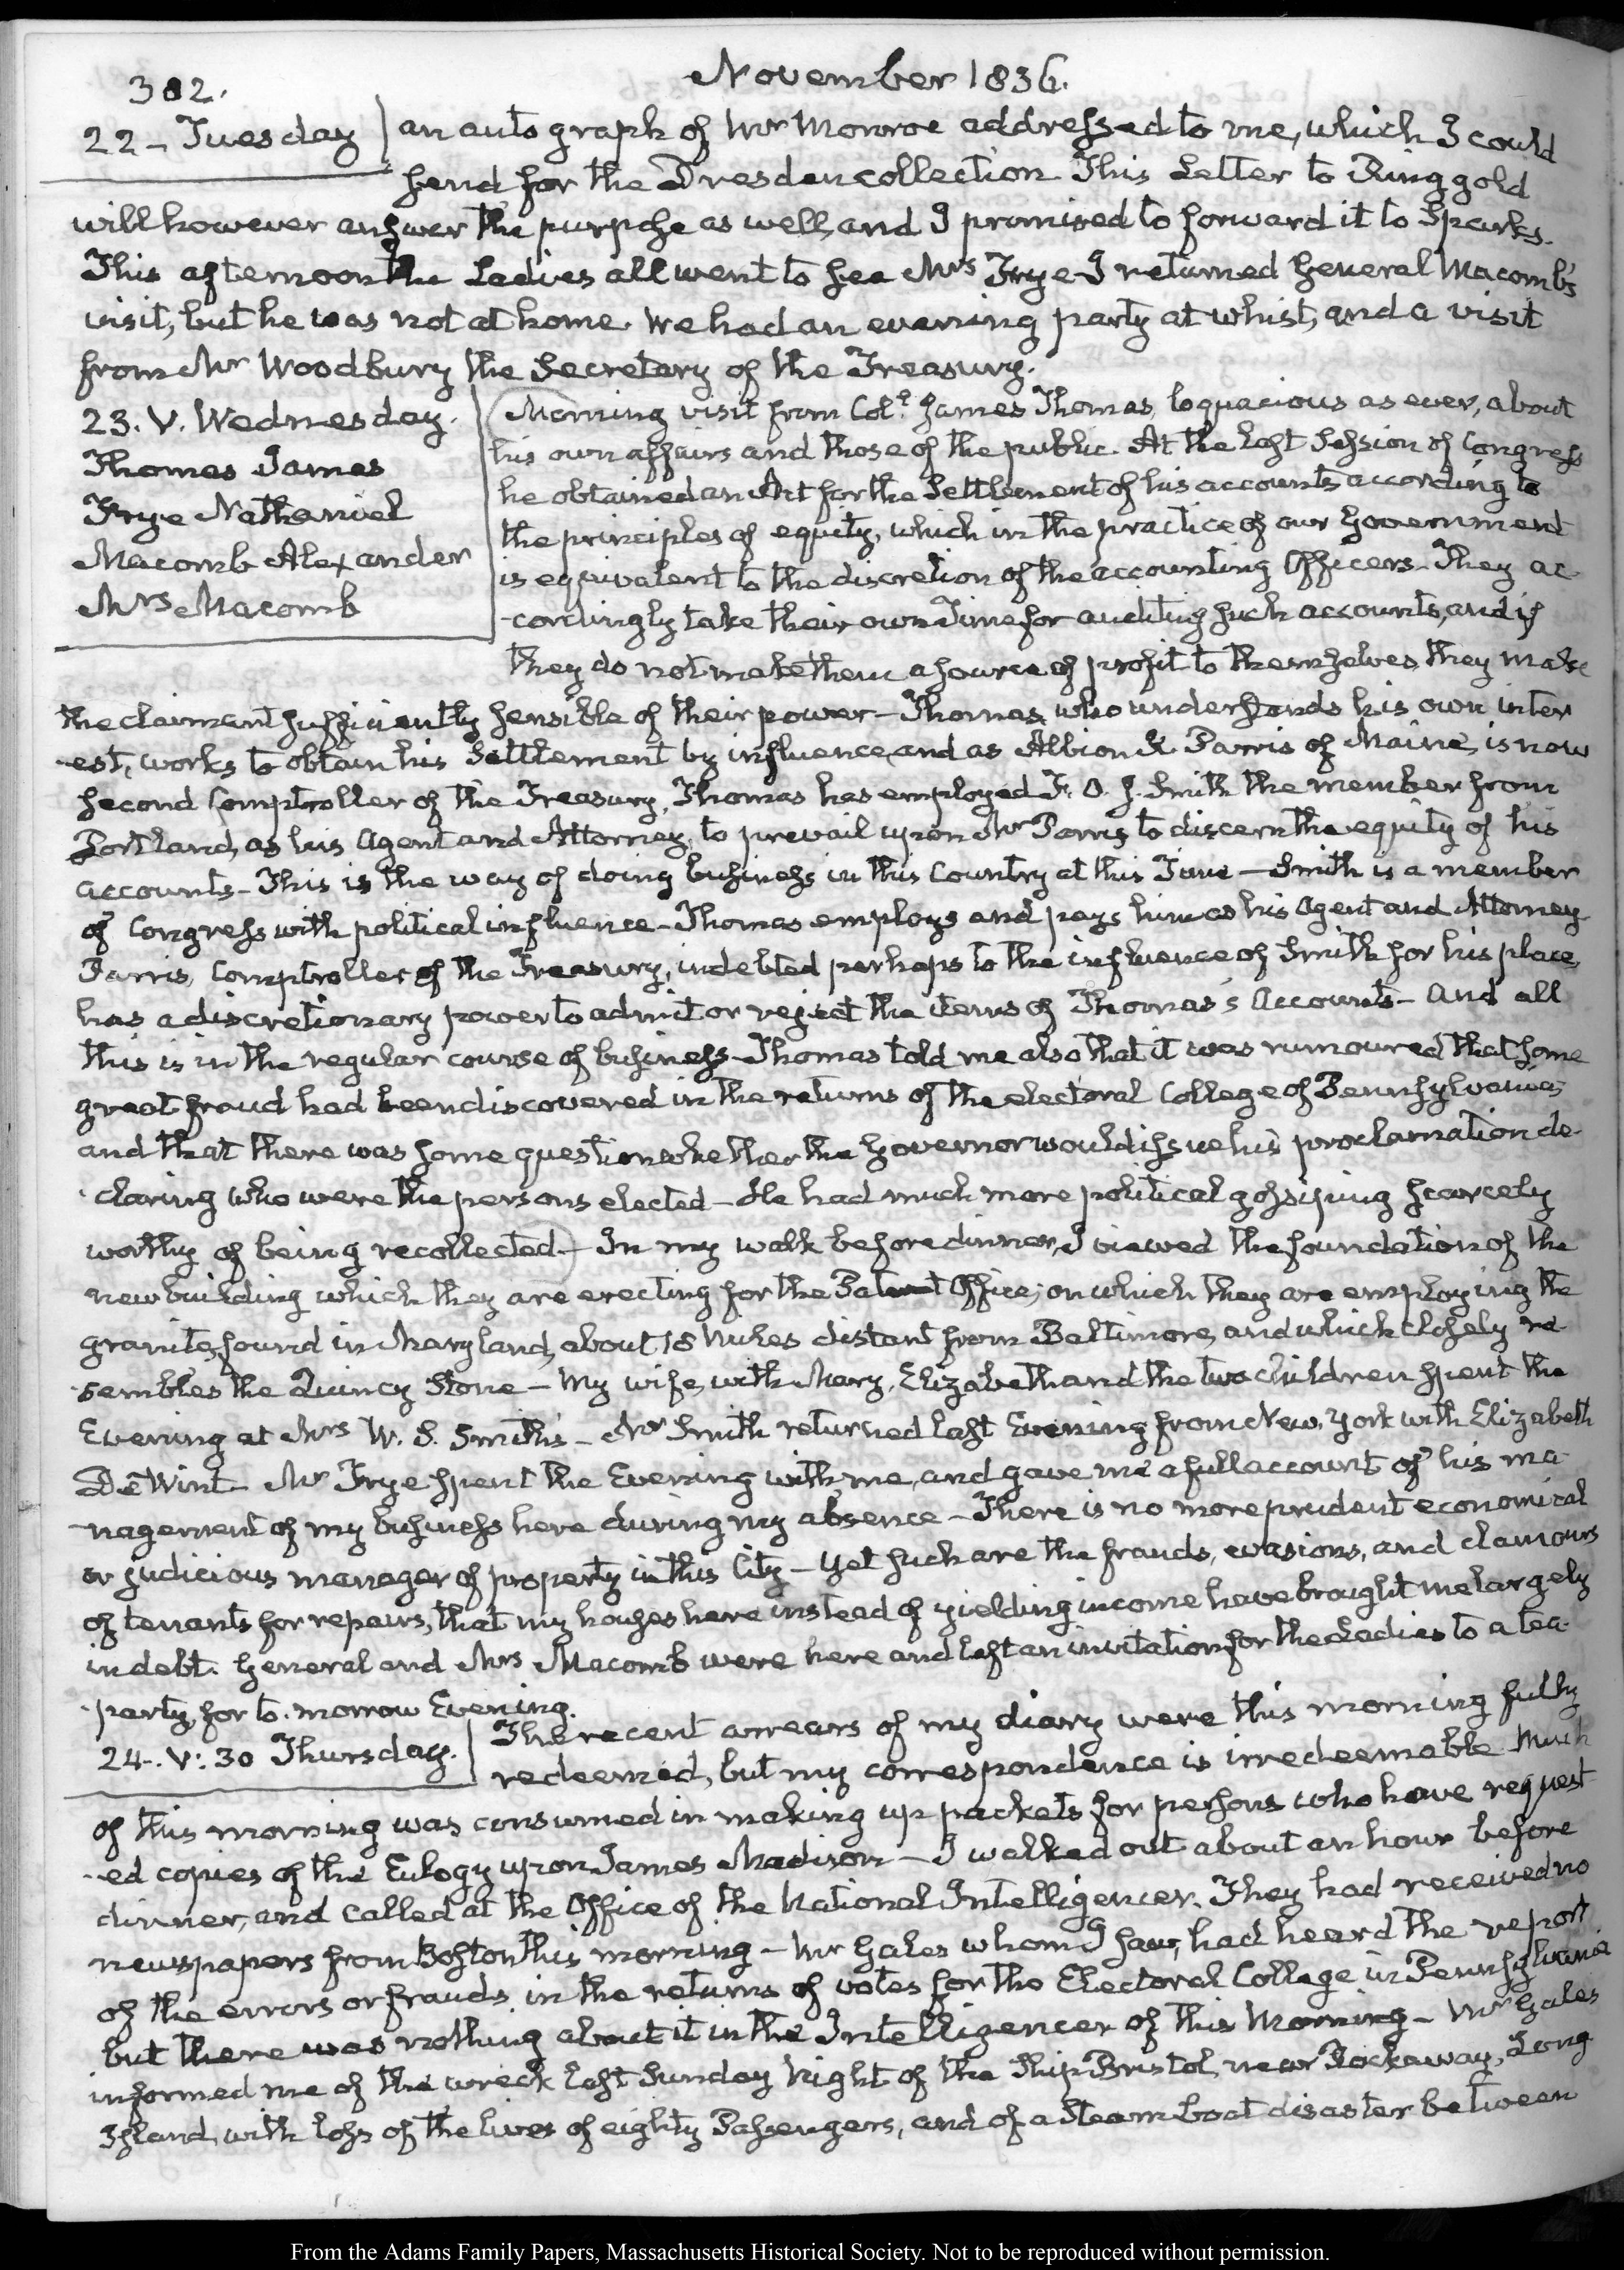 November 1836.
382.
22 – Tuesday
an autograph of Mr Monroe addressed to me, which I could
send for the Dresden collection. This Letter to Ringgold
will however answer the purpose as well, and I promised to forward it to Sparks.
This afternoon the Ladies all went to see Mrs Frye – I returned General Macomb's
visit, but he was not at home. We had an evening party at whist, and a visit
from Mr Woodbury the Secretary of the Treasury.
23. V. Wednesday.
Thomas James
Frye Nathaniel
Macomb Alexander
Mrs Macomb
Morning visit from Coll. James Thomas, loquacious as ever, about
his own affairs and those of the public. At the last Session of Congress
he obtained an Act for the Settlement of his accounts according to
the principles of equity, which in the practice of our Government
is equivalent to the discretion of the accounting Officers. They ac-
-cordingly take their own Time for auditing such accounts, and if
they do not make them a source of profit to themselves they make
the claimant sufficiently sensible of their power – Thomas, who understands his own inter
-est, works to obtain his Settlement by influence, and as Albion K. Parris of Maine, is now
Second Comptroller of the Treasury, Thomas has employed F. O. J. Smith the member from
Portland, as his Agent and Attorney, to prevail upon Mr Parris to discern the equity of his
accounts – This is the way of doing business in this Country at this Time – Smith is a member
of Congress with political influence – Thomas employs and pays him as his Agent and Attorney
Parris, Comptroller of the Treasury, indebted perhaps to the influence of Smith for his place,
has a discretionary power to admit or reject the items of Thomas's Accounts – And all
this is in the regular course of business – Thomas told me also that it was rumoured that some
great fraud had been discovered in the returns of the electoral College of Pennsylvania;
and that there was some question whether the Governor would issue his proclamation de-
-claring who were the persons elected – He had much more political gossiping scarcely
worthy of being recollected – In my walk before dinner, I viewed the foundation of the
new building which they are erecting for the Patent Office; on which they are employing the
granite, found in Maryland, about 18 Miles distant from Baltimore, and which closely re-
-sembles the Quincy Stone – My wife, with Mary, Elizabeth and the two children spent the
Evening at Mrs W. S. Smith's – Mr Smith returned last Evening from New-York with Elizabeth
De Wint – Mr Frye spent the Evening with me, and gave me a full account of his ma-
-nagement of my business here during my absence – There is no more prudent economical
or judicious manager of property in this City – Yet such are the frauds, evasions, and clamours
of tenants for repairs, that my houses here instead of yielding income have brought me largely
in debt. General and Mrs Macomb were here and left an invitation for the Ladies to a tea-
-party, for to-morrow Evening.
24. V: 30 Thursday.
The recent arrears of my diary were this morning fully
redeemed, but my correspondence is irredeemable. Much
of this morning was consumed in making up packets for persons who have request
-ed copies of the Eulogy upon James Madison – I walked out about an hour before
dinner, and called at the Office of the National Intelligencer. They had received no
newspapers from Boston this morning – Mr Gales whom I saw, had heard the report
of the errors or frauds in the returns of votes for the Electoral College in Pennsylvania
but there was nothing about it in the Intelligencer of this Morning – Mr Gales
informed me of the wreck last Sunday Night of the Ship Bristol, near Rockaway, Long
Island, with loss of the lives of eighty Passengers, and of a Steam boat disaster between
From the Adams Family Papers, Massachusetts Historical Society. Not to be reproduced without permission.